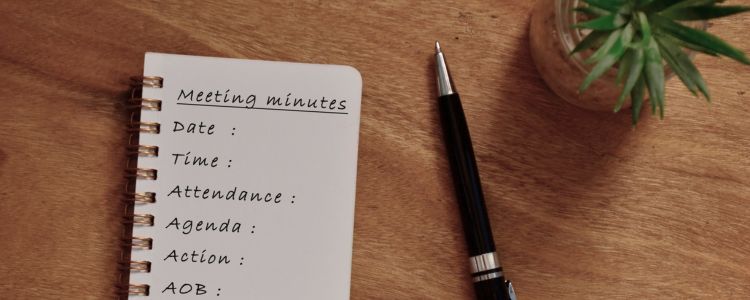 Meeting minutes
Date :
Time :
Attendance :
Agenda :
Action :
AOB :